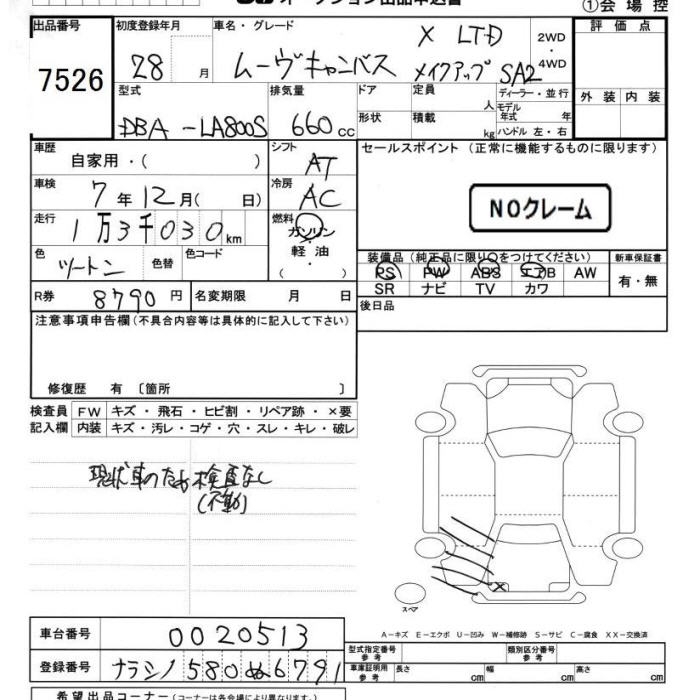 オークション出品申込書 ①会場控
出品番号 初度登録年月 車名・グレード 評価点
7526 28 月 ムーヴキャンバス X LTD メイクアップ SA2 2WD・4WD
型式 排気量 ドア 定員 人 ディーラー・並行 外装 内装
DBA-LA800S 660cc 形状 積載 kg モデル年式 年 ハンドル 左・右
車歴 自家用・( ) シフト AT セールスポイント (正常に機能するものに限ります)
車検 7年12月( 日) 冷房 AC NOクレーム
走行 1万3千030km 燃料 ガソリン・軽油・( )
色 ツートン 色替 色コード 装備品 (純正品に限り○をつけてください) 新車保証書
PS PW ABS エアB AW 有・無
SR ナビ TV カワ
R券 8790円 名変期限 月 日 後日品
注意事項申告欄 (不具合内容等は具体的に記入して下さい)
修復歴 有 〔箇所 〕
検査員 FW キズ・飛石・ヒビ割・リペア跡・×要
記入欄 内装 キズ・汚レ・コゲ・穴・スレ・キレ・破レ
現状車のため検査なし
(不動)
×
スペア
A−キズ E−エクボ U−凹み W−補修跡 S−サビ C−腐食 XX−交換済
車台番号 0020513 型式指定番号 参考 類別区分番号 参考
登録番号 ナラシノ580ぬ6791 車庫証明用 参考 長さ cm 幅 cm 高さ cm
希望出品コーナー (コーナーは各会場により異なります)